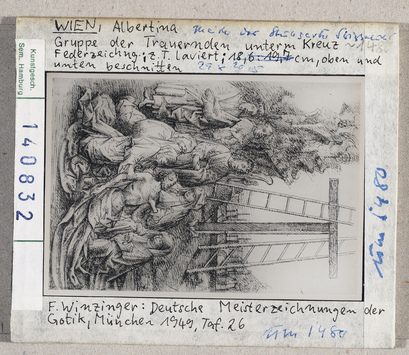 WIEN, Albertina
Gruppe der Trauernden unterm Kreuz
Federzeichng; z.T. laviert; 18,6 : 19,7 cm, oben und
unten beschnitten
Kunstgesch.
Sem. Hamburg
140832
um 1480
F. Winzinger: Deutsche Meisterzeichnungen der
Gotik, München 1949, Taf. 26
um 1480